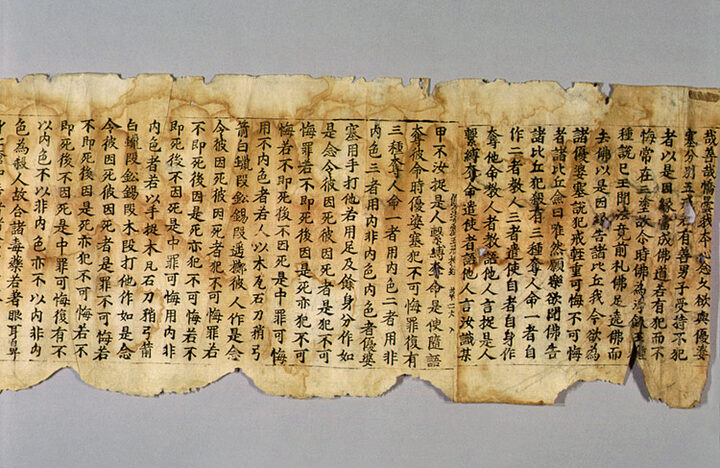 哉善哉憍曇我本心念久欲與優婆
塞分別五戒若有善男子受持不犯
者以是因緣當成佛道若有犯而不
悔常在三塗故今時佛為淨飯王種
種說已王聞法竟前礼佛足遶佛而
去佛以是因緣告諸比丘我今欲為
諸優婆塞說犯戒輕重可悔不可悔
者諸比丘僉曰唯然願樂欲聞佛告
諸比丘犯煞有三種奪人命一者自
作二者教人三者遣使自者自身作
奪他命教人者教語他人言捉是人
繫縛奪命遣使者語他人言汝識某
甲不汝捉是人繫縛奪命是使隨語
奪彼命時優婆塞犯不可悔罪復有
三種奪人命一者用內色二者用非
內色三者用內非內色內色者優婆
塞用手打他若用足及餘身分作如
是念令彼因死彼因死者是犯不可
悔罪若不即死後因是死亦犯不可
悔若不即死後不因死是中罪可悔
用不內色者若人以木瓦石刀矟弓
箭白鑞段鈆錫段遥擲彼人作是念
令彼因死彼因死者犯不可悔罪若
不即死後因是死亦犯不可悔若不
即死後不因死是中罪可悔用內非
內色者若以手捉木瓦石刀矟弓箭
白鑞段鈆錫段木段打他作如是念
令彼因死彼因死者是罪不可悔若
不即死後因是死亦犯不可悔若不
即死後不因死是中罪可悔復有不
以內色不以非內色亦不以內非內
色為殺人故合諸毒藥若著眼耳鼻